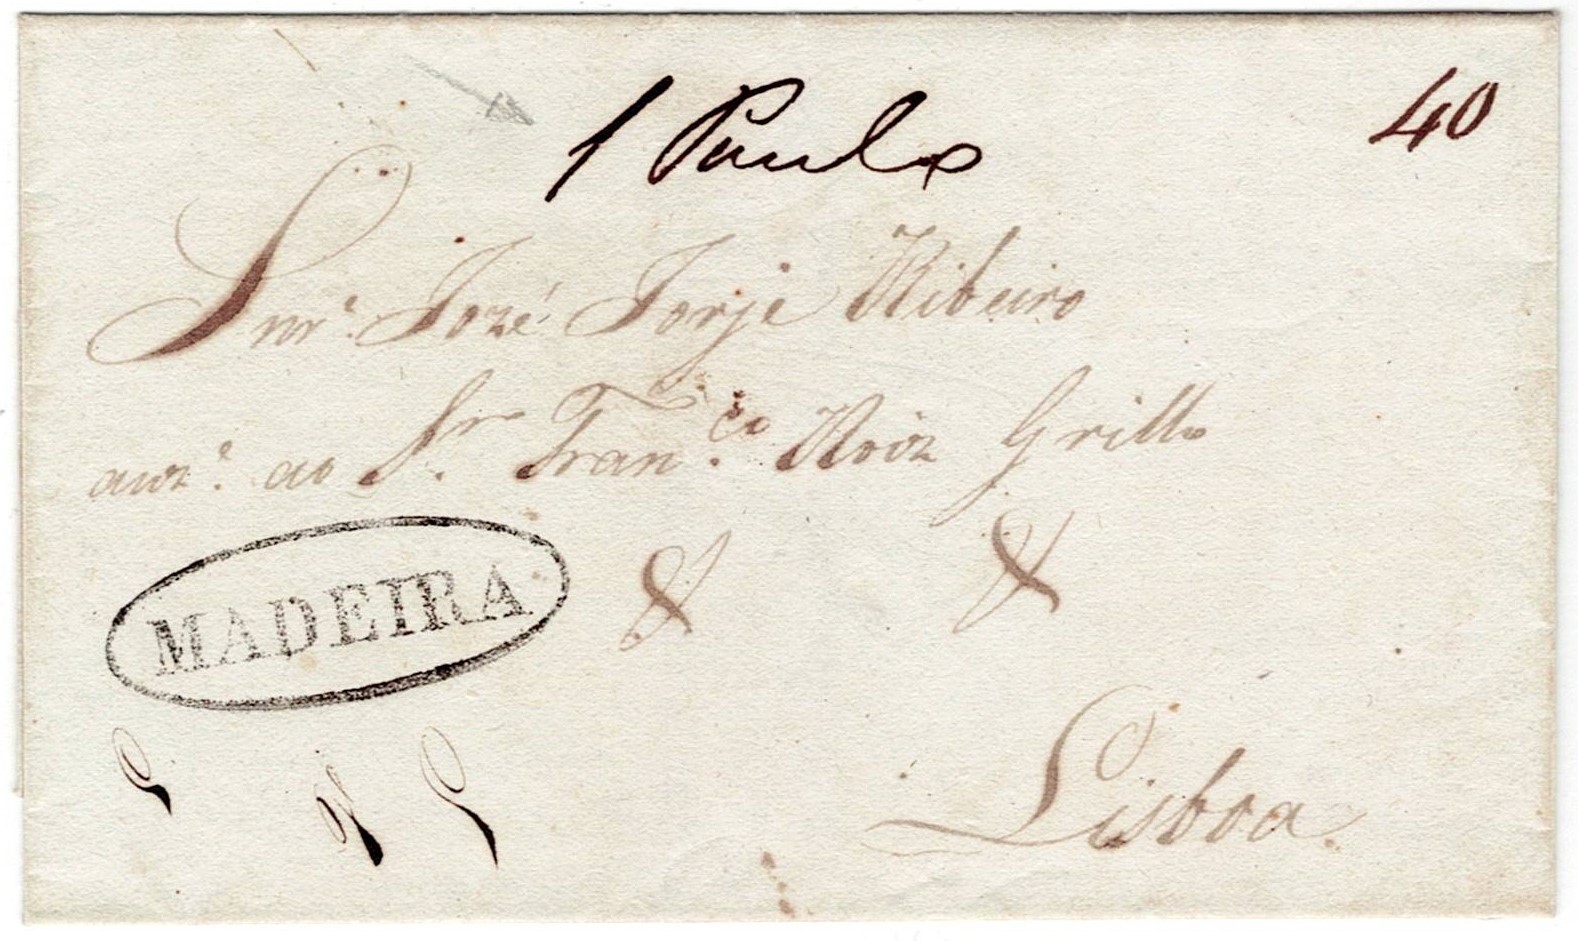 1 Paulo
40
Snr. Jozé Jorje Ribeiro
auz.e ao Sr. Fran.co Roiz Grillo
& &
MADEIRA
Lisboa